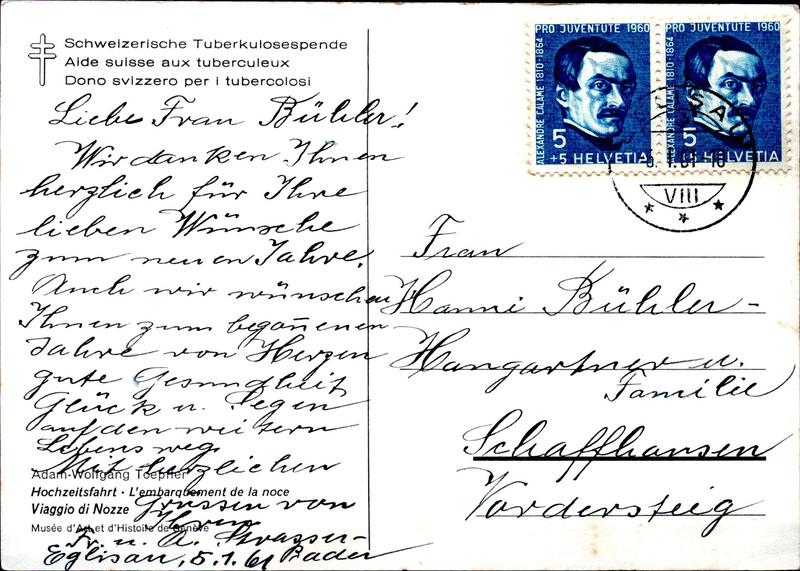 Schweizerische Tuberkulosespende
Aide suisse aux tuberculeux
Dono svizzero per i tubercolosi
PRO JUVENTUTE 1960
ALEXANDRE CALAME 1810-1864
5
+5 HELVETIA
PRO JUVENTUTE 1960
ALEXANDRE CALAME 1810-1864
5
+5 HELVETIA
5.1.61-18
VIII
Liebe Frau Bühler!
Wir danken Ihnen
herzlich für Ihre
lieben Wünsche
zum neuen Jahre.
Auch wir wünschen
Ihnen zum begon̄enen
Jahre von Herzen
gute Gesundheit
Glück u. Segen
auf den weitern
Lebensweg.
Mit herzlichen
Grüssen von
Fr. u. Strasser-
Eglisau, 5.1.61 Bader
Adam-Wolfgang Toepffer
Hochzeitsfahrt · L'embarquement de la noce
Viaggio di Nozze
Musée d'Art et d'Histoire de Genève
Frau
Hanni Bühler-
Hangartner u.
Familie
Schaffhausen
Vordersteig